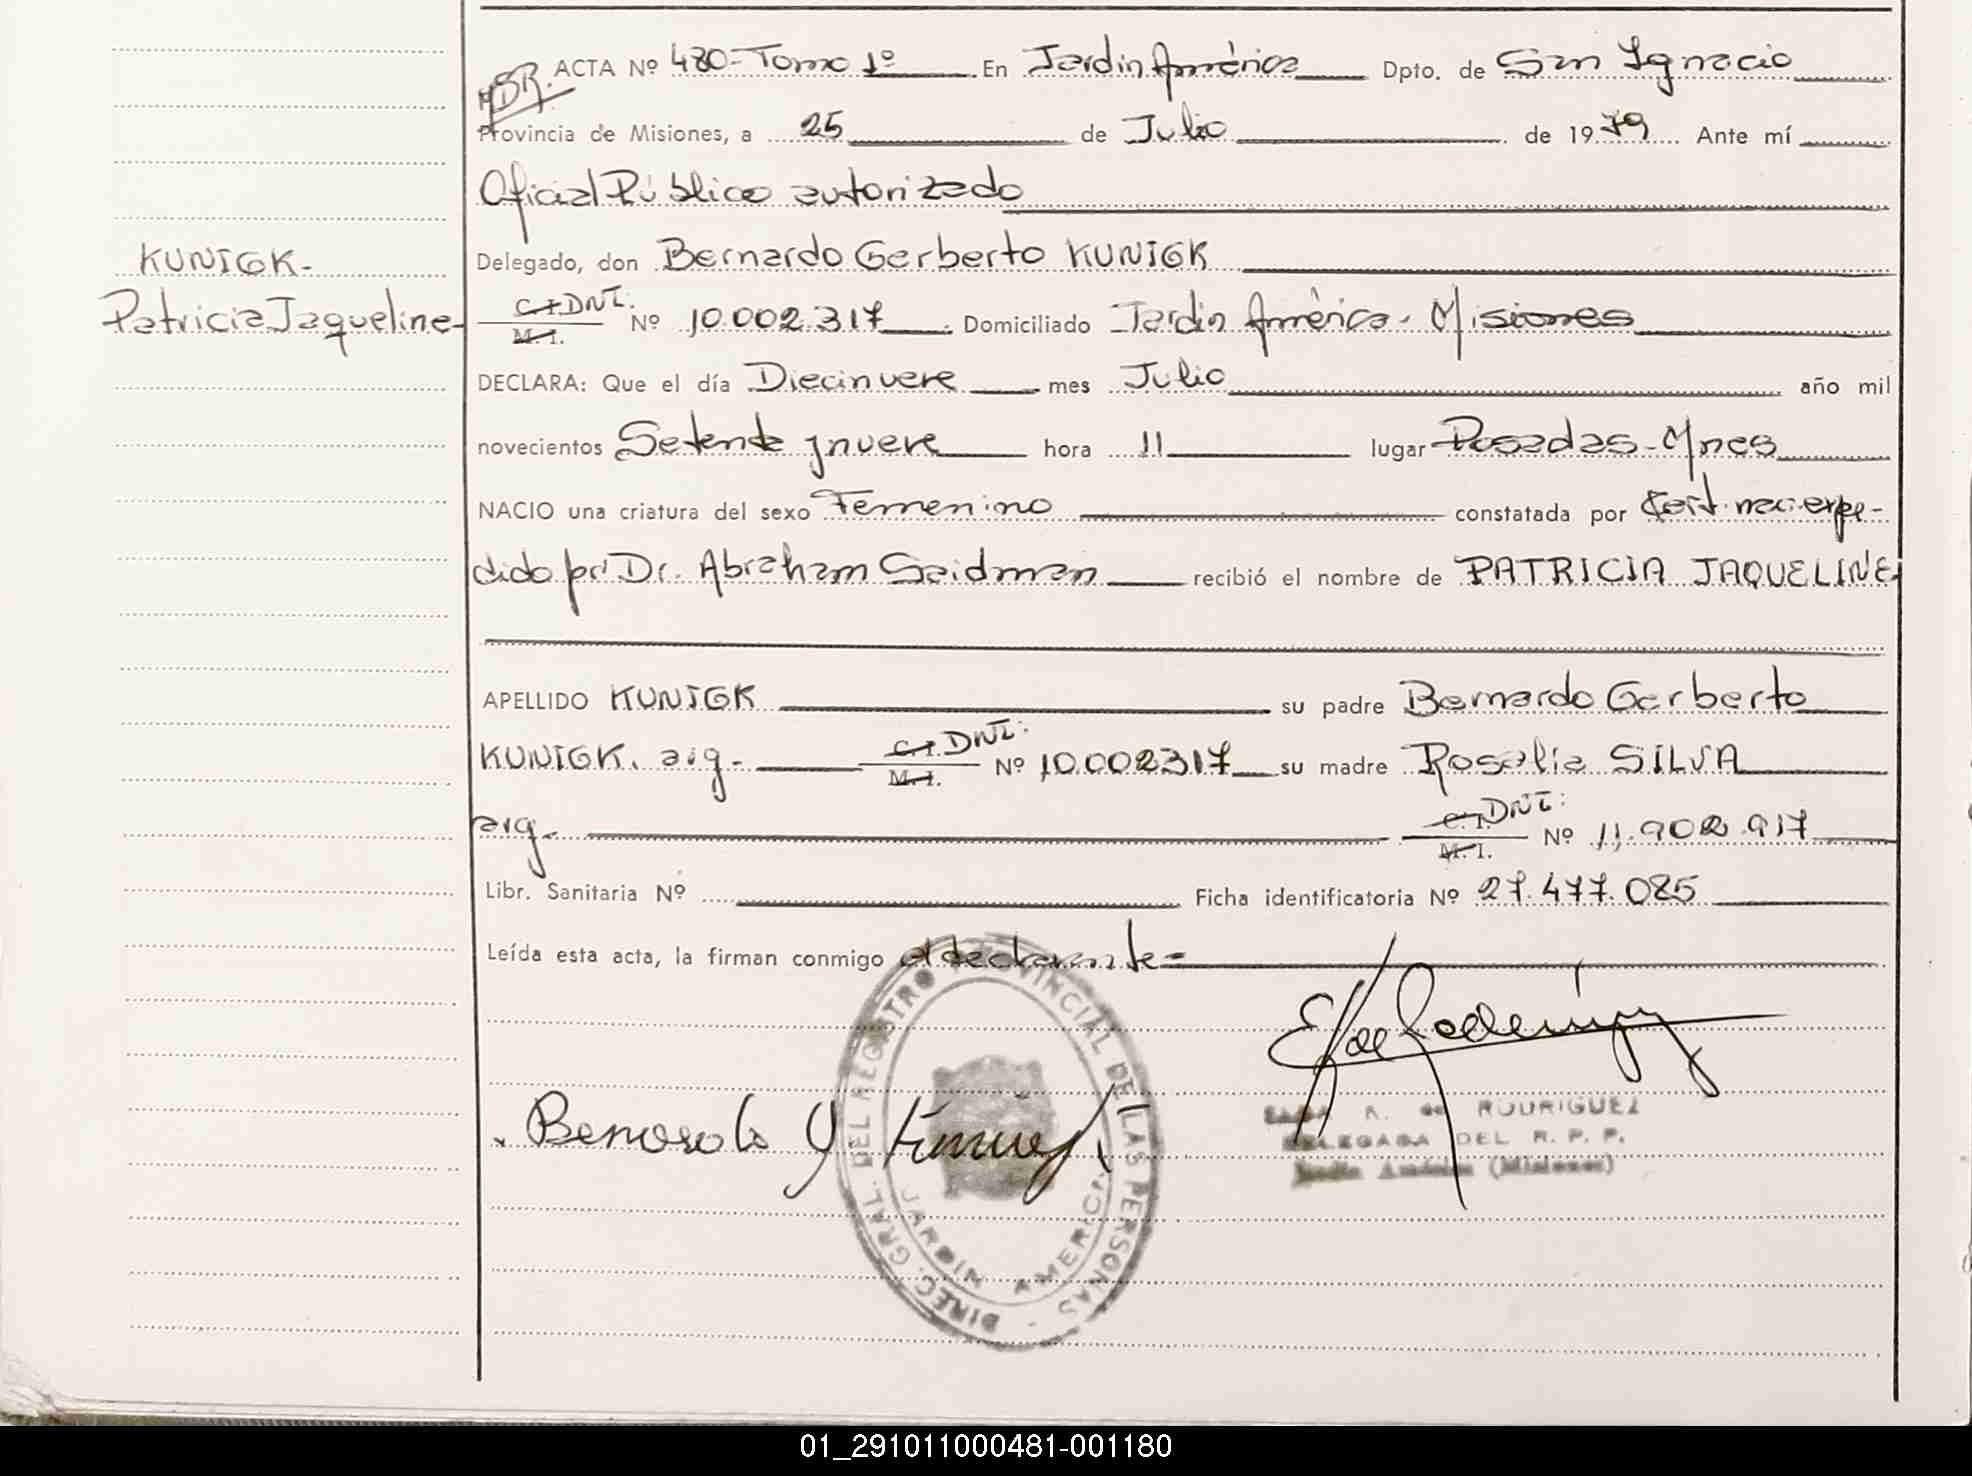 KUNIGK-
Patricia Jaqueline-
ACTA Nº 480-Tomo 1º En Jardin América Dpto. de San Ignacio
Provincia de Misiones, a 25 de Julio de 1979 Ante mí
Oficial Público autorizado
Delegado, don Bernardo Gerberto KUNIGK
C.I. DNI: M.I. Nº 10.002.317 Domiciliado Jardin América- Misiones
DECLARA: Que el día Diecinueve mes Julio año mil
novecientos Setenta y nueve hora 11 lugar Posadas-Mnes
NACIO una criatura del sexo Femenino constatada por Cert. nac. expe-
dido por Dr. Abraham Saidman recibió el nombre de PATRICIA JAQUELINE
APELLIDO KUNIGK su padre Bernardo Gerberto
KUNIGK. arg- C.I. DNI: M.I. Nº 10.002317 su madre Rosalia SILVA
arg- C.I. DNI: M.I. Nº 11.902.917
Libr. Sanitaria Nº Ficha identificatoria Nº 27.477.085
Leída esta acta, la firman conmigo el declarante-
DIREC. GRAL. DEL REGISTRO PROVINCIAL DE LAS PERSONAS -
JARDIN AMERICA
R. de RODRIGUEZ
DELEGADA DEL R. P. P.
Jardín América (Misiones)
01_291011000481-001180